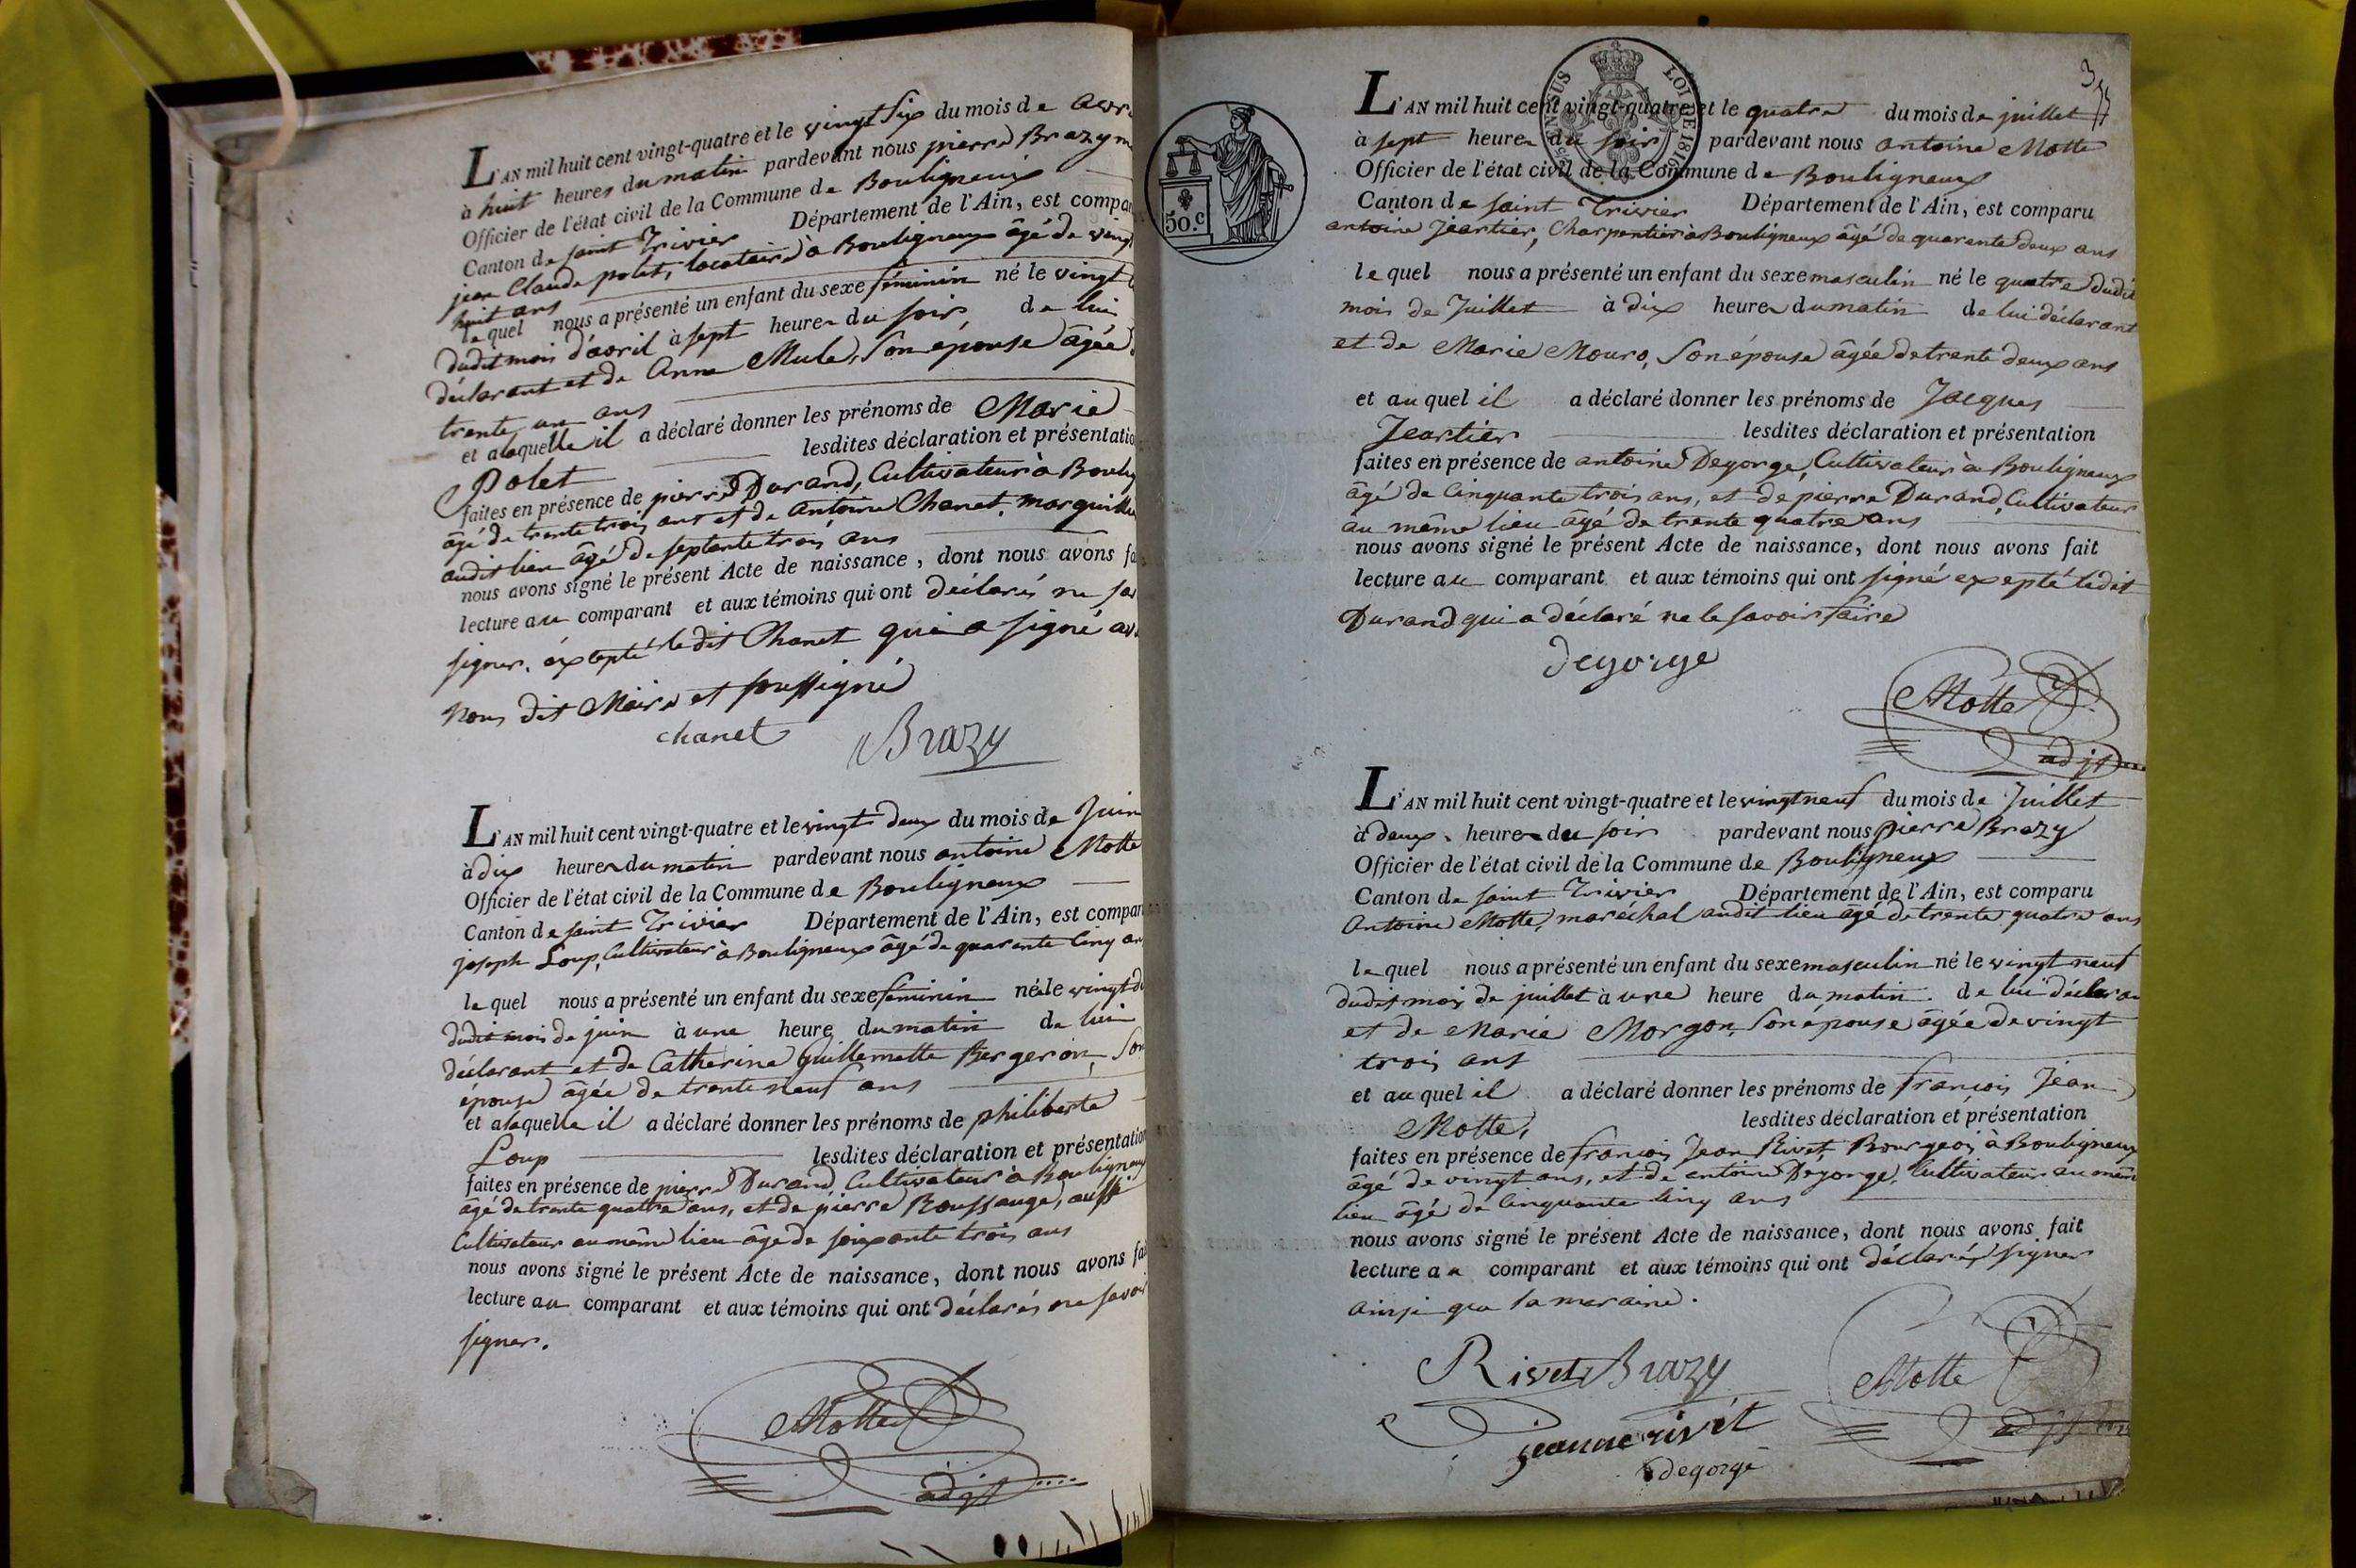 L'AN mil huit cent vingt-quatre et le vingt Six du mois de avr
à huit heures du matin pardevant nous pierre Brazy m
Officier de l'état civil de la Commune de Bouligneux
Canton de saint Trivier Département de l'Ain, est compar
jean Claude polet, locataire à Bouligneux âgé de vingt
huit ans
le quel nous a présenté un enfant du sexe féminin né le vingt
dudit mois d'avril à sept heures du soir de lui
déclarant et de Anna Mule, Son épouse âgée
trente un ans
et a laquelle il a déclaré donner les prénoms de Marie
Polet lesdites déclaration et présentatio
faites en présence de pierre Durand, Cultivateur à Boulig
âgé de trente trois ans et de antoine Chanet, marguille
audit lieu âgé de septante trois ans
nous avons signé le présent Acte de naissance, dont nous avons fa
lecture au comparant et aux témoins qui ont déclarés ne sav
signer, éxcepté le dit Chanet qui a signé av
nous dit Maire et soussigné
chanet Brazy
L'AN mil huit cent vingt-quatre et le vingt deux du mois de Juin
à dix heures du matin pardevant nous antoine Motte
Officier de l'état civil de la Commune de Bouligneux
Canton de saint Trivier Département de l'Ain, est compar
joseph Loup, Cultivateur à Bouligneux âgé de quarante Cinq an
le quel nous a présenté un enfant du sexe féminin née le vingt d
dudit mois de juin à une heure du matin de lui
déclarant et de Catherine Guillemette Bergeron, Son
épouse âgée de trente neuf ans
et a laquelle il a déclaré donner les prénoms de philiberte
Loup lesdites déclaration et présentation
faites en présence de pierre Durand, Cultivateur à Bouligneux
âgé de trente quatre ans, et de pierre Roussange, aussi
Cultivateur au même lieu âgé de soixante trois ans
nous avons signé le présent Acte de naissance, dont nous avons fai
lecture au comparant et aux témoins qui ont déclarés ne savoir
signer.
Motte
adjt
50.c
25 EN SUS LOI DE 1816
L'AN mil huit cent vingt-quatre et le quatre du mois de juillet
à sept heures du soir pardevant nous antoine Motte
Officier de l'état civil de la Commune de Bouligneux
Canton de saint Trivier Département de l'Ain, est comparu
antoine Jeartier, Charpentier à Bouligneux âgé de quarante deux ans
le quel nous a présenté un enfant du sexe masculin né le quatre dudit
mois de Juillet à dix heures du matin de lui déclarant
et de Marie Mouro, Son épouse âgée de trente deux ans
et au quel il a déclaré donner les prénoms de Jacques
Jeartier lesdites déclaration et présentation
faites en présence de antoine Degorge, Cultivateur à Bouligneux
âgé de Cinquante trois ans, et de pierre Durand, Cultivateur
au même lieu âgé de trente quatre ans
nous avons signé le présent Acte de naissance, dont nous avons fait
lecture au comparant et aux témoins qui ont signé exepté ledit
Durand qui a déclaré ne le savoir faire
degorge
Motte
adjt
L'AN mil huit cent vingt-quatre et le vingt neuf du mois de Juillet
à deux heures du soir pardevant nous pierre Brazy
Officier de l'état civil de la Commune de Bouligneux
Canton de saint Trivier Département de l'Ain, est comparu
Antoine Motte, maréchal audit lieu âgé de trente quatre ans
le quel nous a présenté un enfant du sexe masculin né le vingt neuf
dudit mois de juillet à une heure du matin de lui déclaran
et de Marie Morgon, Son épouse âgée de vingt
trois ans
et au quel il a déclaré donner les prénoms de francois Jean
Motte, lesdites déclaration et présentation
faites en présence de francois Jean Rivet, Bourgeois à Bouligneux
âgé de vingt ans, et de antoine Degorge, Cultivateur au mêm
lieu âgé de Cinquante Cinq ans
nous avons signé le présent Acte de naissance, dont nous avons fait
lecture au comparant et aux témoins qui ont déclarés signer
ainsi que la maraine.
Rivet Brazy Motte
adjt
jeanne rivet
degorge